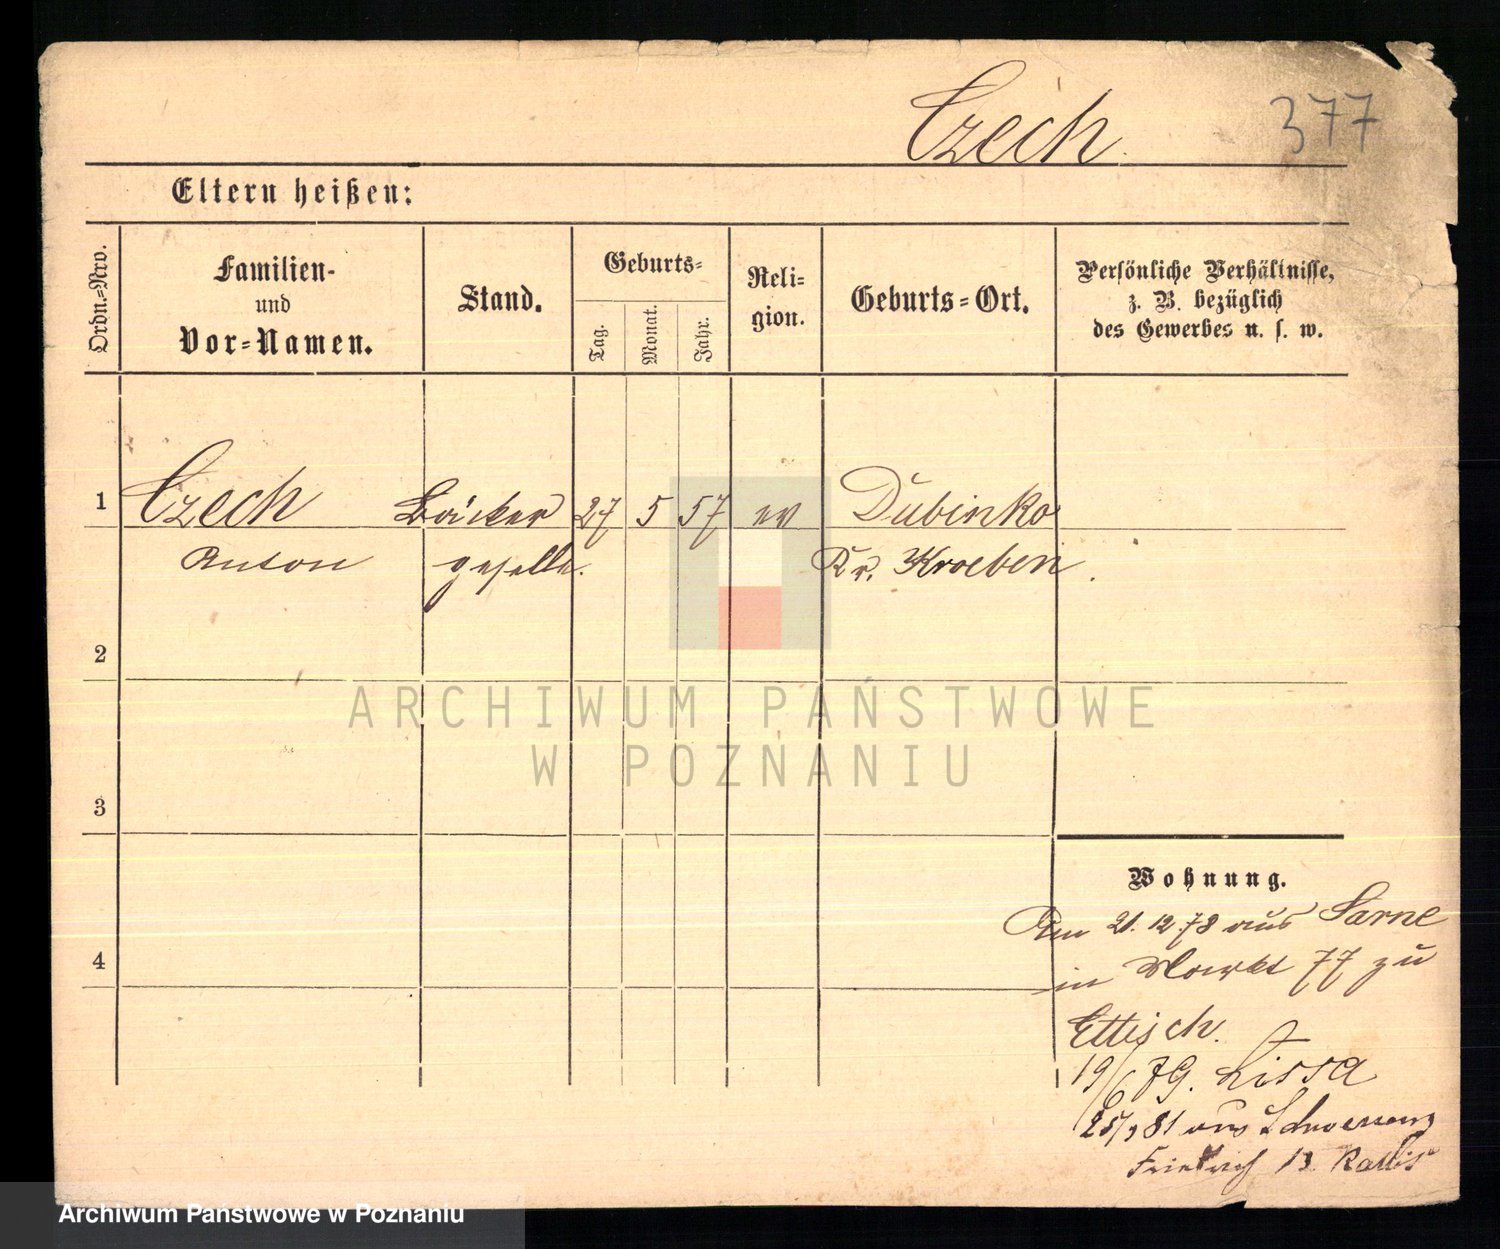 Czech.
377
Eltern heißen:
Ordn.-Nro.
Familien-
und
Vor-Namen.
Stand.
Geburts-
Tag.
Monat.
Jahr.
Reli-
gion.
Geburts-Ort.
Persönliche Verhältnisse,
z. B. bezüglich
des Gewerbes u. s. w.
1 Czech Bäcker 27 5 57 ev Dubinko
Anton geselle. Kr. Kroeben.
2
3
4
Wohnung.
Am 21.12.78 aus Sarne
in Markt 77 zu
Ettisch.
19/6 79. Lissa
25/9 81 aus Schwersenz
Friedrich 13
ARCHIWUM PAŃSTWOWE
W POZNANIU
Archiwum Państwowe w Poznaniu